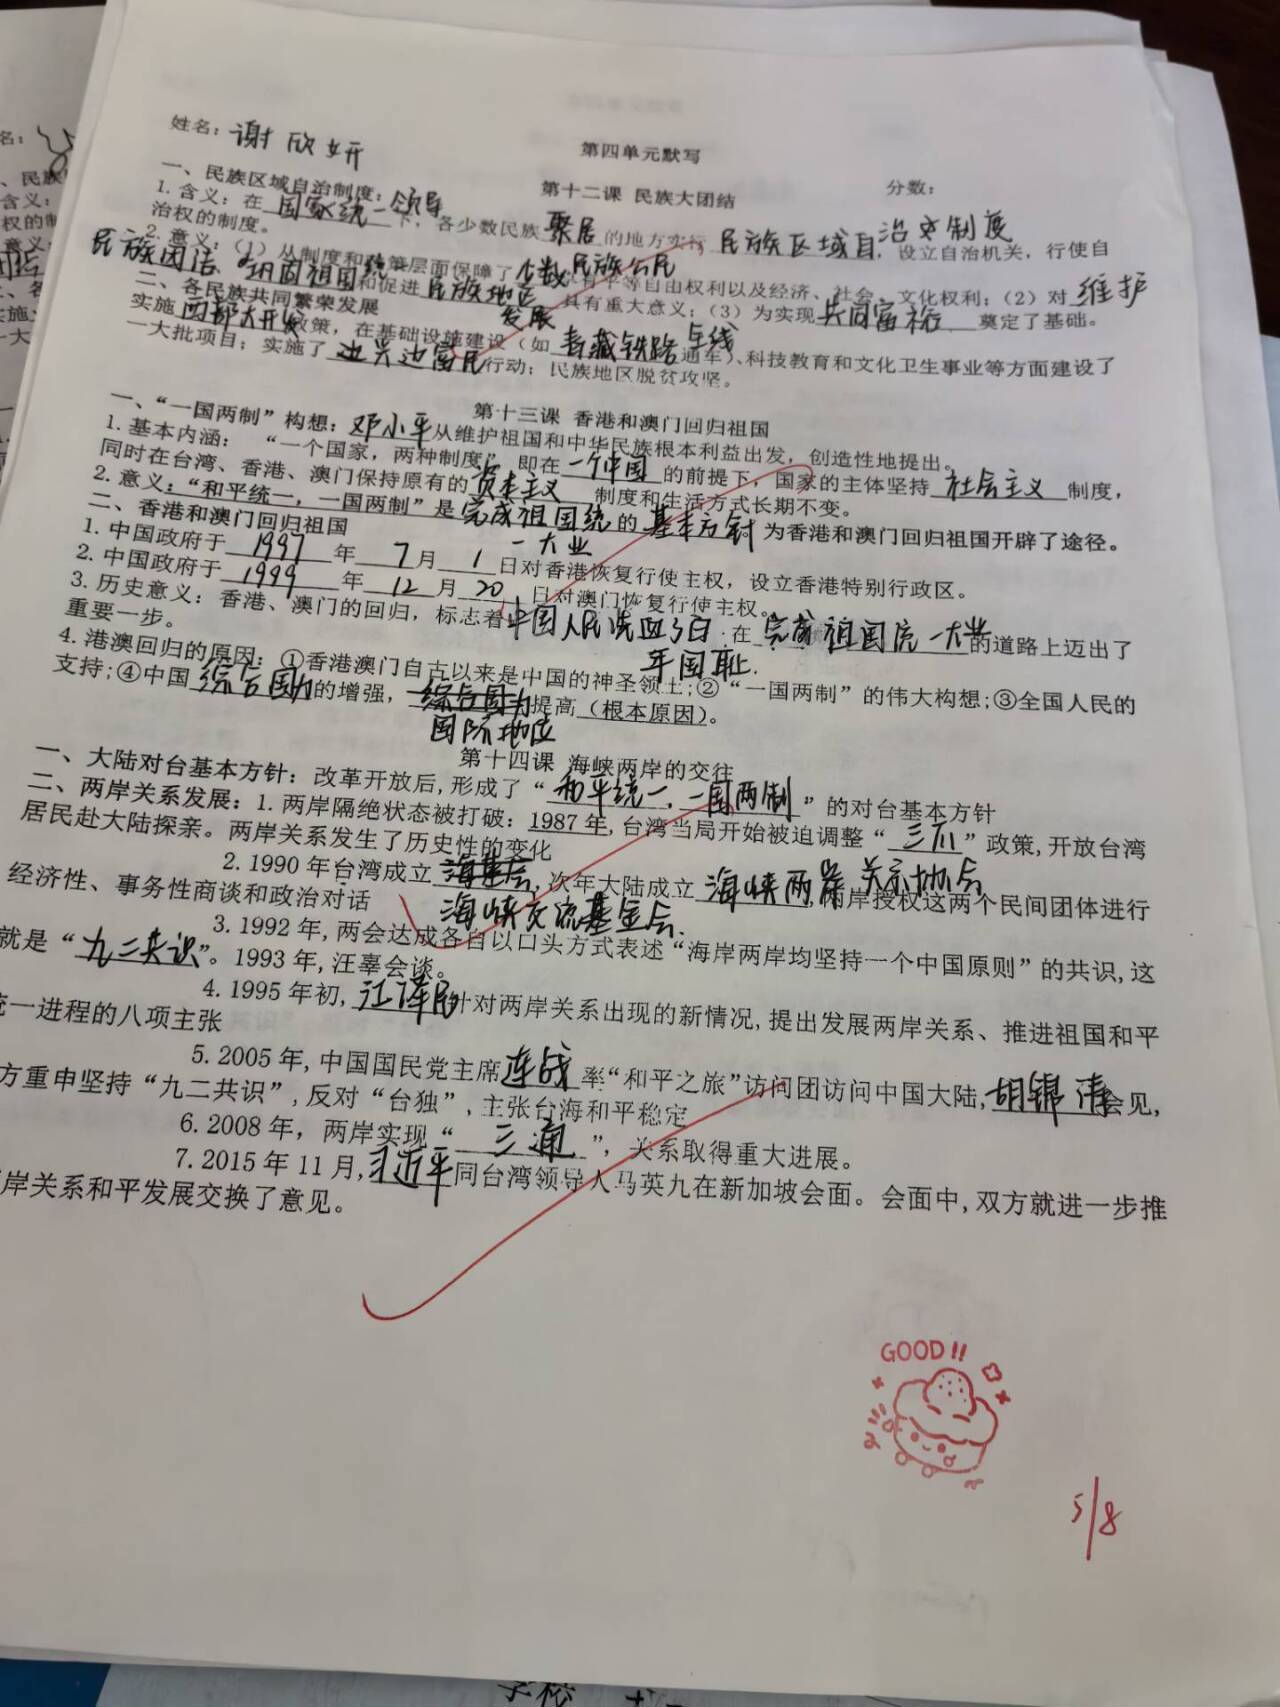 姓名：谢欣妍
第四单元默写
第十二课 民族大团结 分数：
一、民族区域自治制度：
1. 含义：在 国家统一领导 下，各少数民族 聚居 的地方实行 民族区域自治制度，设立自治机关，行使自
治权的制度。
2. 意义：（1）从制度和政策层面保障了 少数民族公民 享有平等自由权利以及经济、社会、文化权利；（2）对 维护
民族团结、巩固祖国统一 和促进 民族地区发展 具有重大意义；（3）为实现 共同富裕 奠定了基础。
二、各民族共同繁荣发展
实施 西部大开发 政策，在基础设施建设（如 青藏铁路全线 通车）、科技教育和文化卫生事业等方面建设了
一大批项目；实施了 兴边富民 行动；民族地区脱贫攻坚。
第十三课 香港和澳门回归祖国
一、“一国两制”构想：邓小平 从维护祖国和中华民族根本利益出发，创造性地提出。
1. 基本内涵： “一个国家，两种制度”，即在 一个中国 的前提下，国家的主体坚持 社会主义 制度，
同时在台湾、香港、澳门保持原有的 资本主义 制度和生活方式长期不变。
2. 意义：“和平统一，一国两制”是 完成祖国统一大业 的 基本方针 为香港和澳门回归祖国开辟了途径。
二、香港和澳门回归祖国
1. 中国政府于 1997 年 7 月 1 日对香港恢复行使主权，设立香港特别行政区。
2. 中国政府于 1999 年 12 月 20 日对澳门恢复行使主权。
3. 历史意义：香港、澳门的回归，标志着 中国人民洗血了百年国耻. 在 完成祖国统一大业 的道路上迈出了
重要一步。
4. 港澳回归的原因：①香港澳门自古以来是中国的神圣领土；②“一国两制”的伟大构想；③全国人民的
支持；④中国 综合国力 的增强， 国际地位 提高（根本原因）。
第十四课 海峡两岸的交往
一、大陆对台基本方针：改革开放后，形成了“和平统一、一国两制”的对台基本方针
二、两岸关系发展：1. 两岸隔绝状态被打破：1987 年，台湾当局开始被迫调整“三不”政策，开放台湾
居民赴大陆探亲。两岸关系发生了历史性的变化
2. 1990 年台湾成立 海峡交流基金会，次年大陆成立 海峡两岸关系协会，两岸授权这两个民间团体进行
经济性、事务性商谈和政治对话
3. 1992 年，两会达成各自以口头方式表述“海岸两岸均坚持一个中国原则”的共识，这
就是“九二共识”。1993 年，汪辜会谈。
4. 1995 年初，江泽民 针对两岸关系出现的新情况，提出发展两岸关系、推进祖国和平
统一进程的八项主张
5. 2005 年，中国国民党主席 连战 率“和平之旅”访问团访问中国大陆，胡锦涛 会见，
方重申坚持“九二共识”，反对“台独”，主张台海和平稳定
6. 2008 年，两岸实现“三通”，关系取得重大进展。
7. 2015 年 11 月，习近平 同台湾领导人马英九在新加坡会面。会面中，双方就进一步推
岸关系和平发展交换了意见。
GOOD!!
5/8